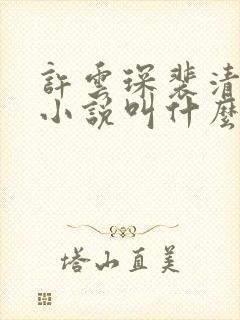 許雲琛裴清
小說叫什麼
塔山直美